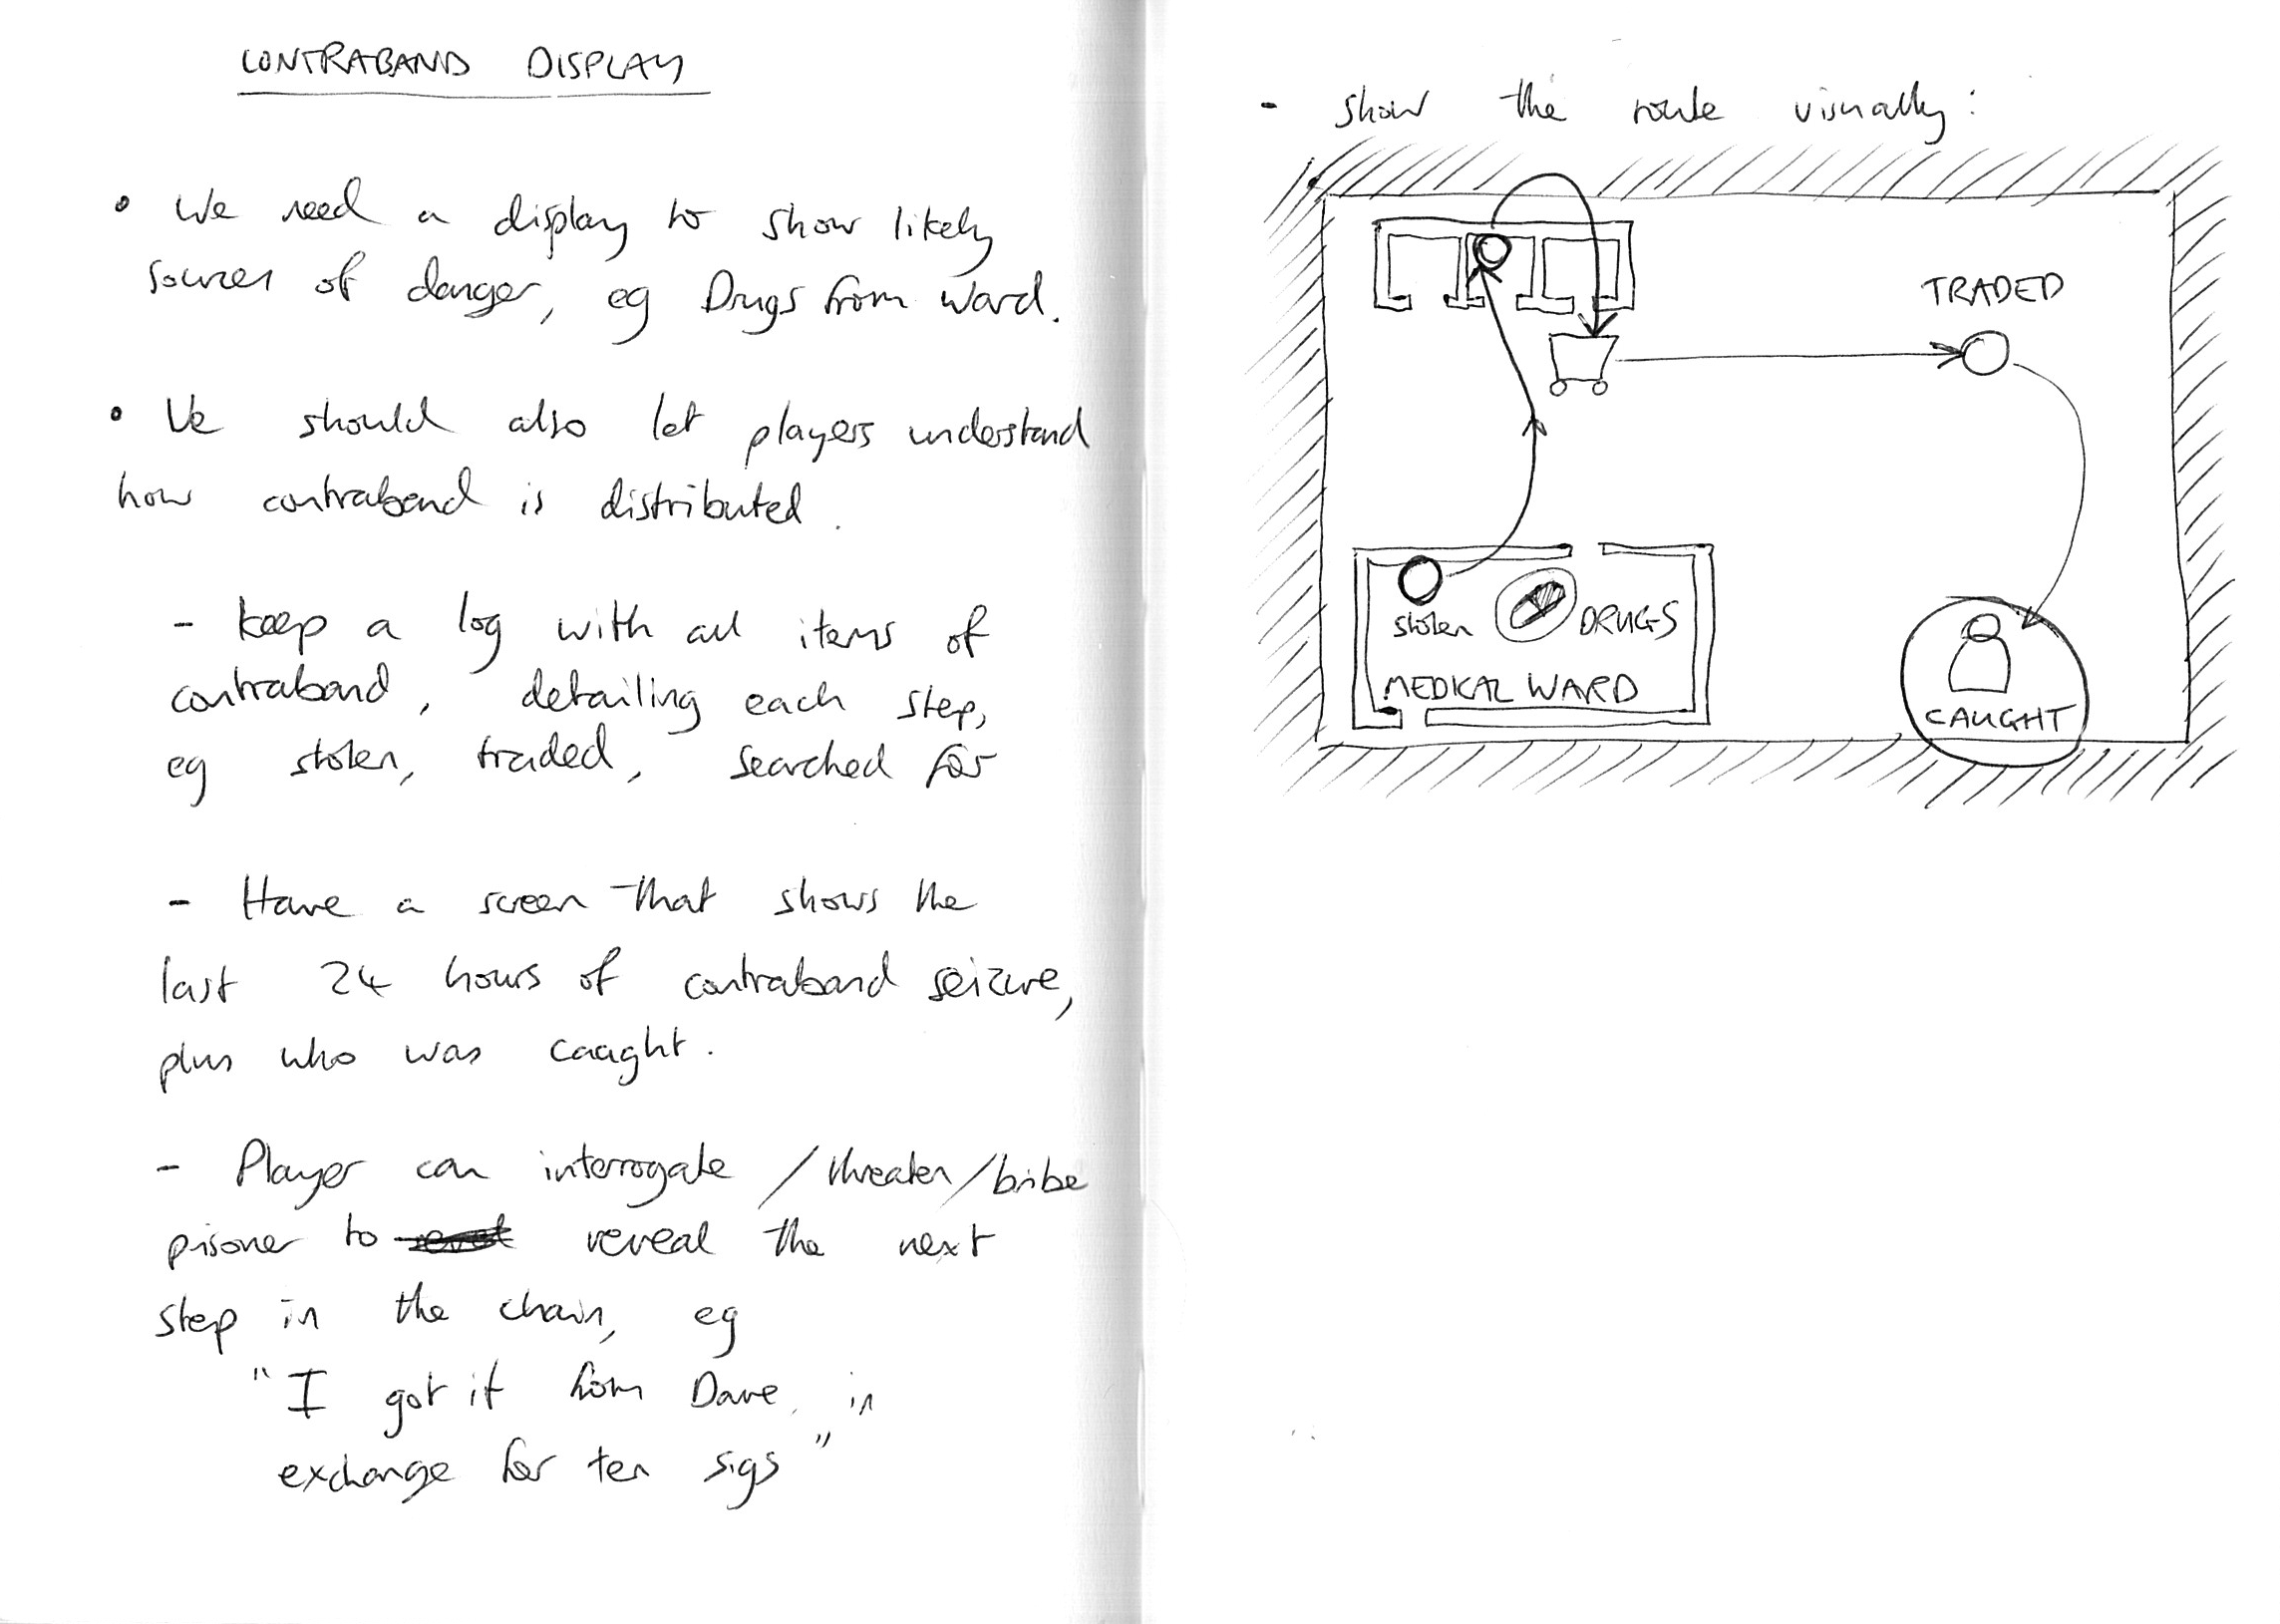 CONTRABAND DISPLAY
• We need a display to show likely
sources of danger, eg Drugs from Ward.
• We should also let players understand
how contraband is distributed.
- keep a log with all items of
contraband, detailing each step,
eg stolen, traded, searched for
- Have a screen that shows the
last 24 hours of contraband seizure,
plus who was caaght.
- Player can interrogate / threaten / bribe
prisoner to reveal the next
step in the chain, eg
"I got it from Dave, in
exchange for ten sigs"
- show the route visually:
TRADED
stolen DRUGS
MEDICAL WARD
CAUGHT